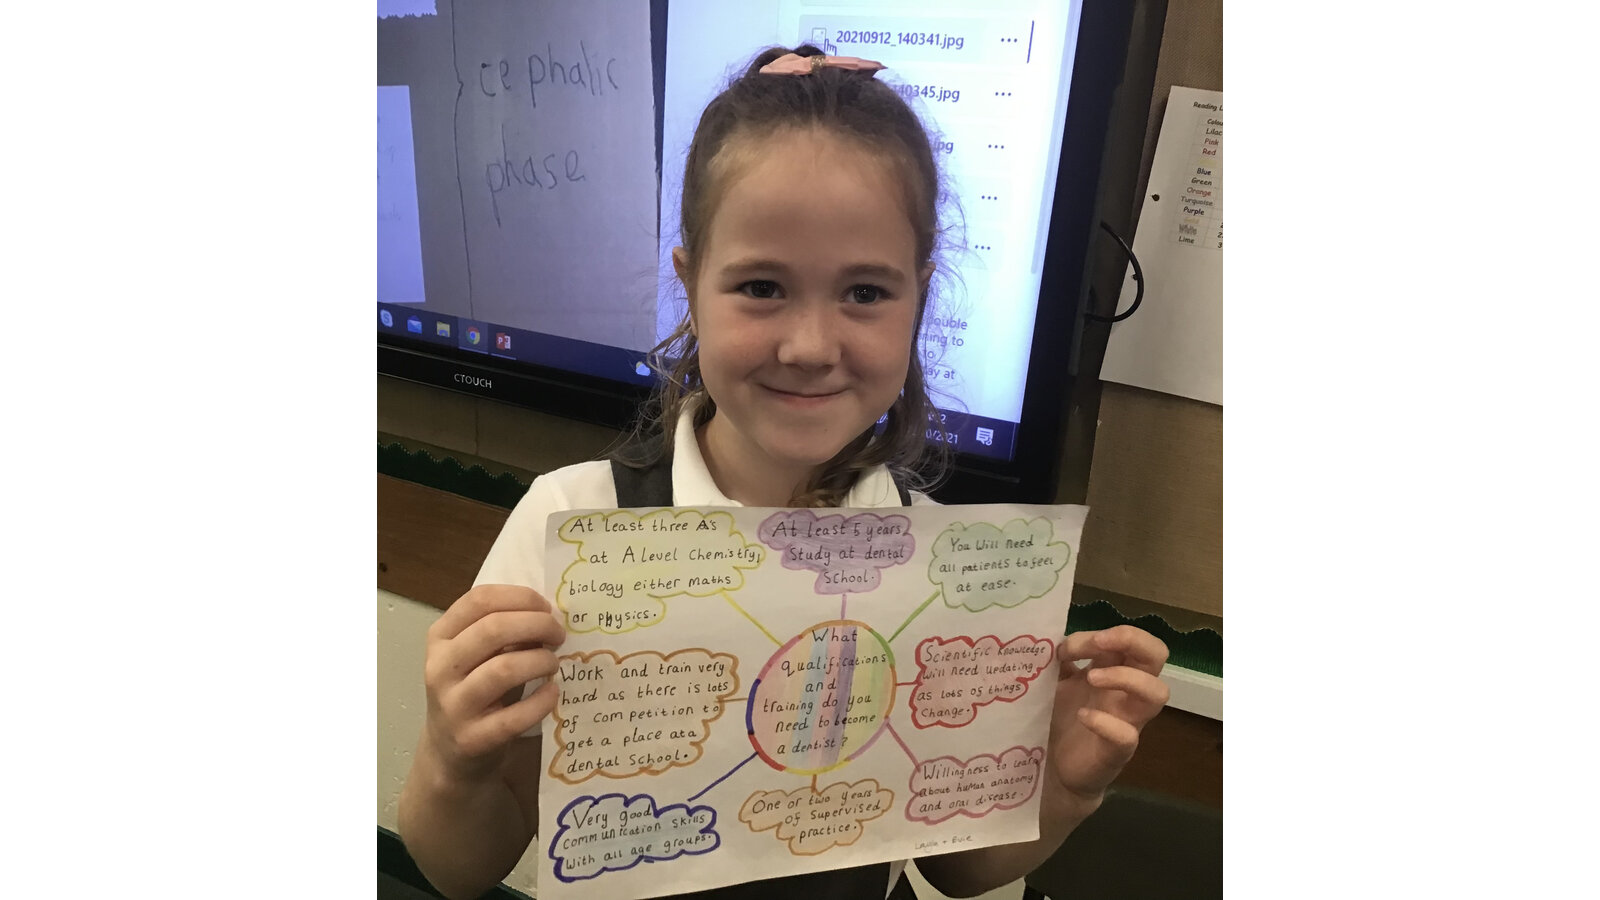 cephalic
phase
20210912_140341.jpg
40345.jpg
jpg
ouble
ning to
to
ay at
0/2021
CTOUCH
Reading L
Colou
Lilac
Pink
Red
Blue
Green
Orange
Turquoise
Purple
White
Lime
At least three A's
at A level Chemistry,
biology either maths
or physics.
At least 5 years
Study at dental
School.
You will need
all patients to feel
at ease.
What
qualifications
and
training do you
need to become
a dentist?
Scientific knowledge
will need updating
as lots of things
Change.
Work and train very
hard as there is lots
of competition to
get a place at a
dental School.
Willingness to learn
about human anatomy
and oral disease.
Very good
communication skills
with all age groups.
One or two years
of supervised
practice.
Layla + Evie